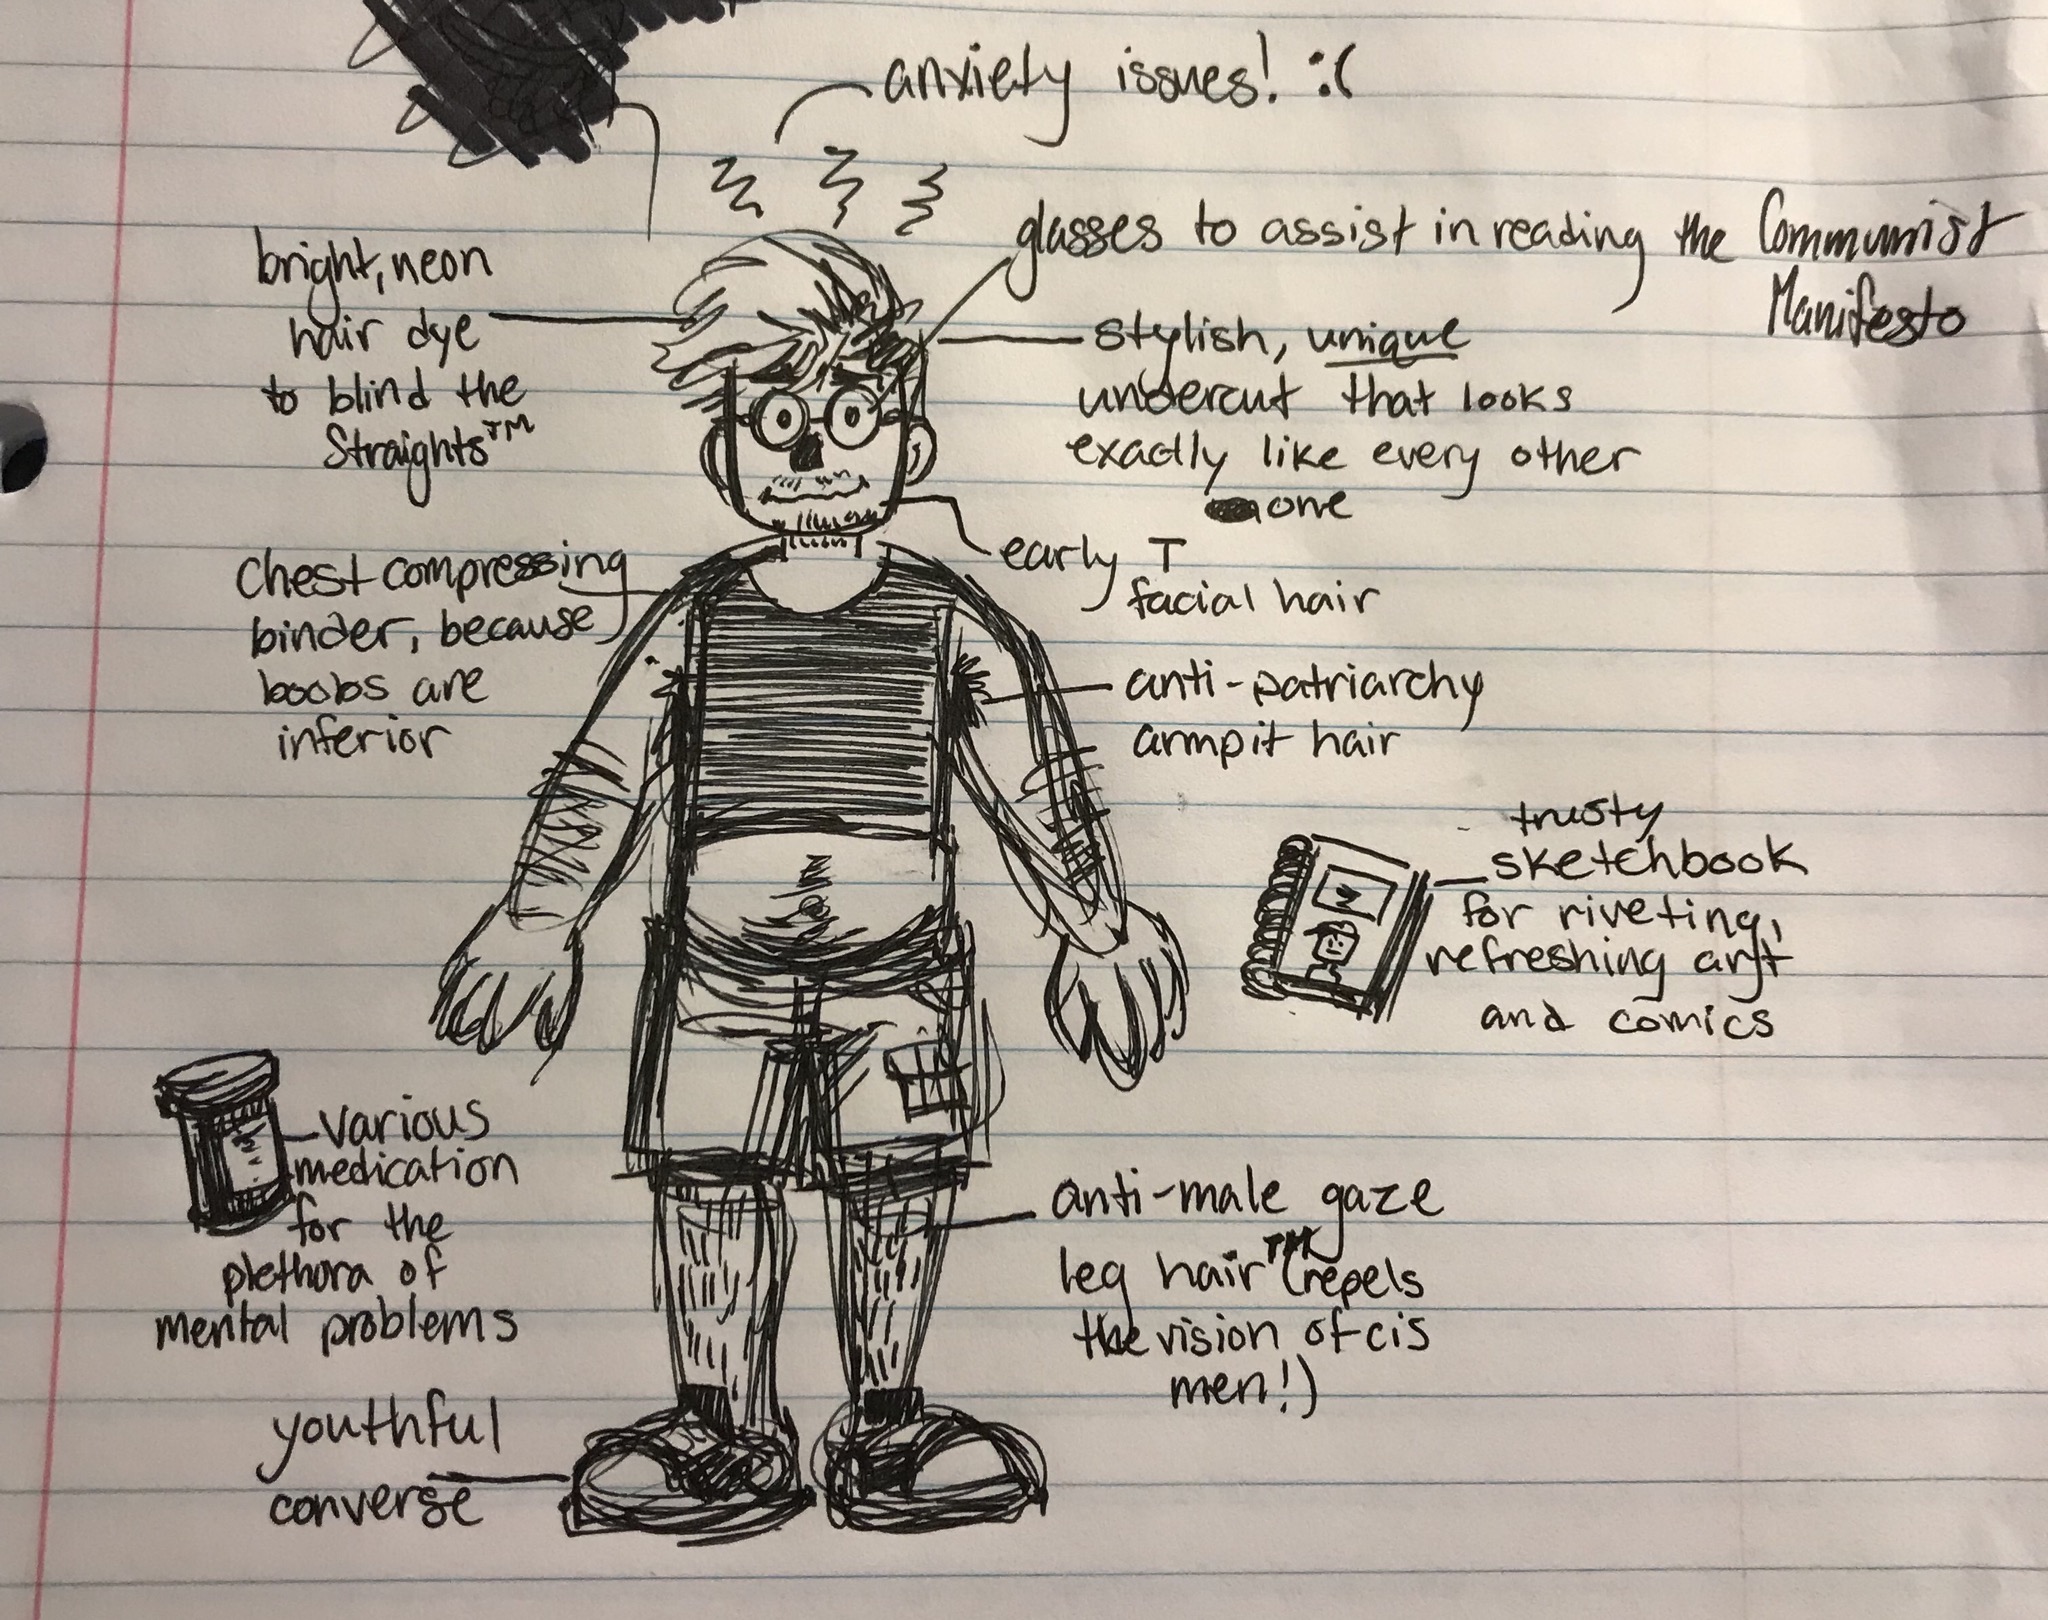 anxiety issues! :(
glasses to assist in reading the Communist
Manifesto
bright, neon
hair dye
to blind the
Straights™
stylish, unique
undercut that looks
exactly like every other
one
early T
facial hair
chest compressing
binder, because
boobs are
inferior
anti-patriarchy
armpit hair
trusty
sketchbook
for riveting,
refreshing art
and comics
various
medication
for the
plethora of
mental problems
anti-male gaze
leg hair™ (repels
the vision of cis
men!)
youthful
converse